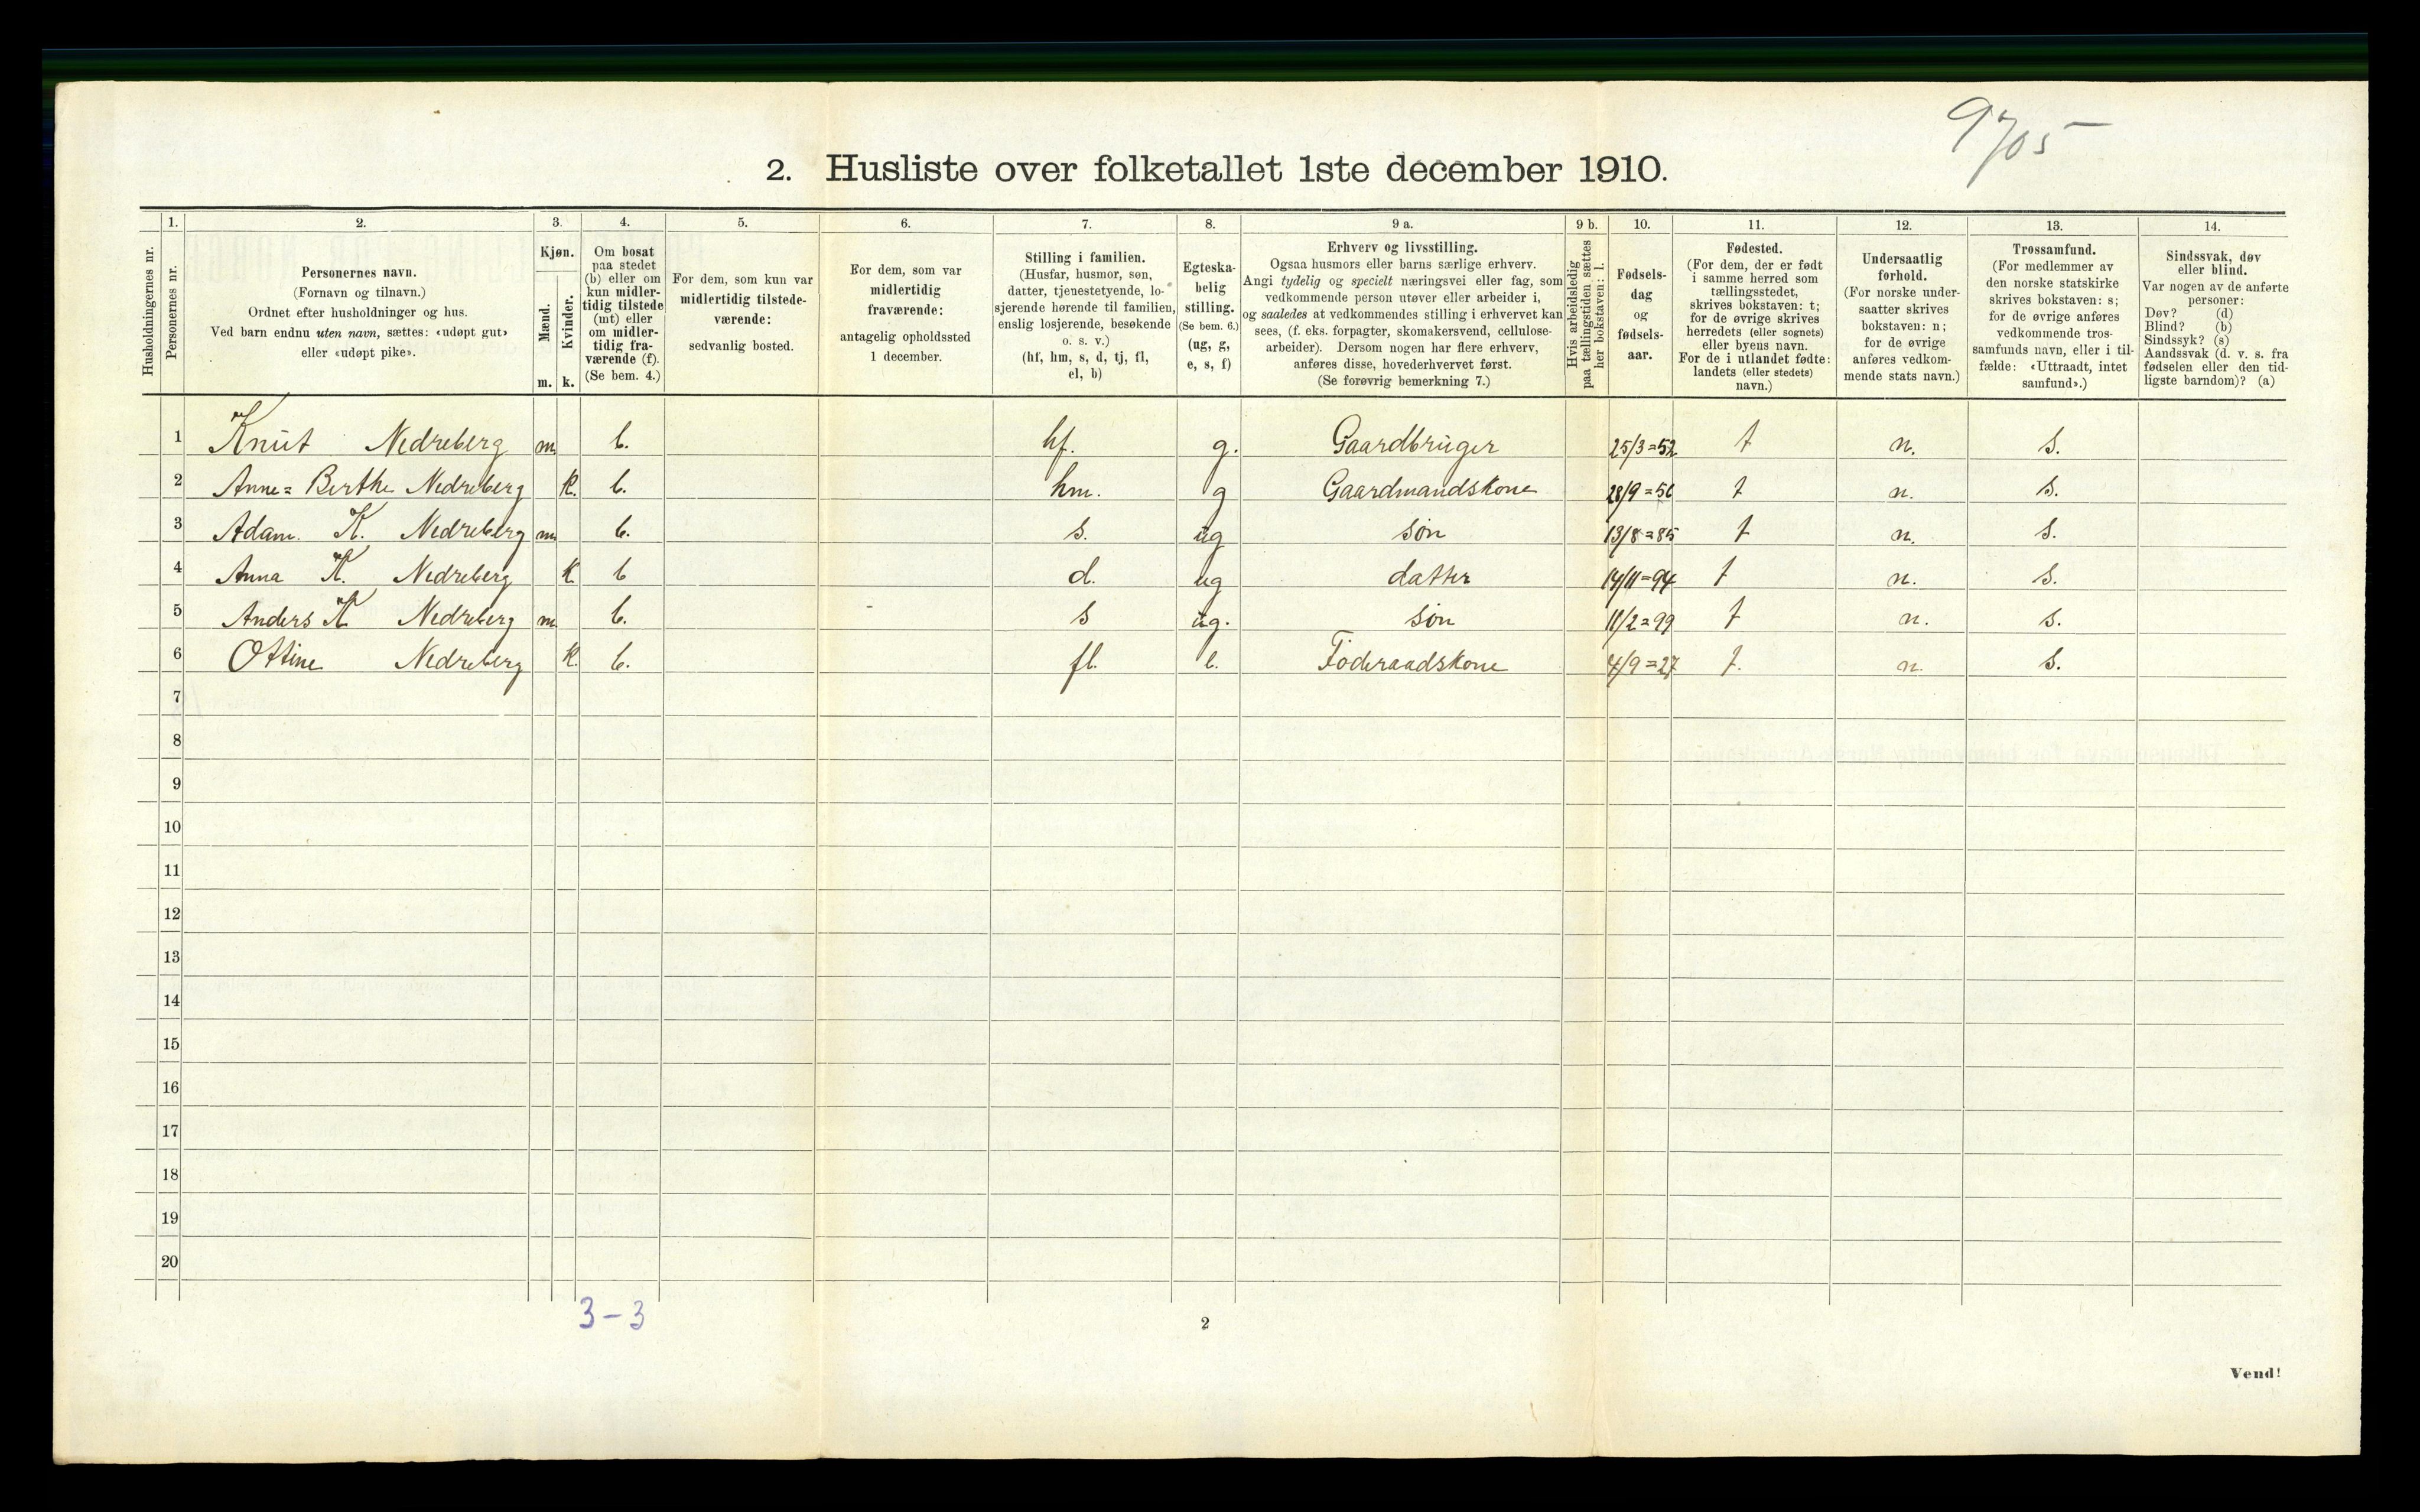 9705
2. Husliste over folketallet 1ste december 1910.
Husholdningernes nr.
1. Personernes nr.
2. Personernes navn. (Fornavn og tilnavn.) Ordnet efter husholdninger og hus. Ved barn endnu uten navn, sættes: «udøpt gut» eller «udøpt pike».
3. Kjøn. Mænd. m. Kvinder. k.
4. Om bosat paa stedet (b) eller om kun midlertidig tilstede (mt) eller om midlertidig fraværende (f). (Se bem. 4.)
5. For dem, som kun var midlertidig tilstedeværende: sedvanlig bosted.
6. For dem, som var midlertidig fraværende: antagelig opholdssted 1 december.
7. Stilling i familien. (Husfar, husmor, søn, datter, tjenestetyende, losjerende hørende til familien, enslig losjerende, besøkende o. s. v.) (hf, hm, s, d, tj, fl, el, b)
8. Egteskabelig stilling. (Se bem. 6.) (ug, g, e, s, f)
9 a. Erhverv og livsstilling. Ogsaa husmors eller barns særlige erhverv. Angi tydelig og specielt næringsvei eller fag, som vedkommende person utøver eller arbeider i, og saaledes at vedkommendes stilling i erhvervet kan sees, (f. eks. forpagter, skomakersvend, cellulosearbeider). Dersom nogen har flere erhverv, anføres disse, hovederhvervet først. (Se forøvrig bemerkning 7.)
9 b. Hvis arbeidsledig paa tællingstiden sættes her bokstaven: l.
10. Fødselsdag og fødselsaar.
11. Fødested. (For dem, der er født i samme herred som tællingsstedet, skrives bokstaven: t; for de øvrige skrives herredets (eller sognets) eller byens navn. For de i utlandet fødte: landets (eller stedets) navn.)
12. Undersaatlig forhold. (For norske undersaatter skrives bokstaven: n; for de øvrige anføres vedkommende stats navn.)
13. Trossamfund. (For medlemmer av den norske statskirke skrives bokstaven: s; for de øvrige anføres vedkommende trossamfunds navn, eller i tilfælde: «Uttraadt, intet samfund».)
14. Sindssvak, døv eller blind. Var nogen av de anførte personer: Døv? (d) Blind? (b) Sindssyk? (s) Aandssvak (d. v. s. fra fødselen eller den tidligste barndom)? (a)
1 Knut Nedreberg m b. hf. g. Gaardbruger 25/3=52 t n. s.
2 Anne=Berthe Nedreberg k. b. hm. g Gaardmandskone 28/9=56 t n. s.
3 Adam. K. Nedreberg m b. s. ug søn 13/8=85 t n. s.
4 Anna K. Nedreberg k b d. ug datter 14/11=94 t n. s.
5 Anders K Nedreberg m b. s ug. søn 11/2=99 t n. s.
6 Ottine Nedreberg k. b. fl. e. Føderaadskone 4/9=27 t. n. s.
7
8
9
10
11
12
13
14
15
16
17
18
19
20
3-3
2
Vend!